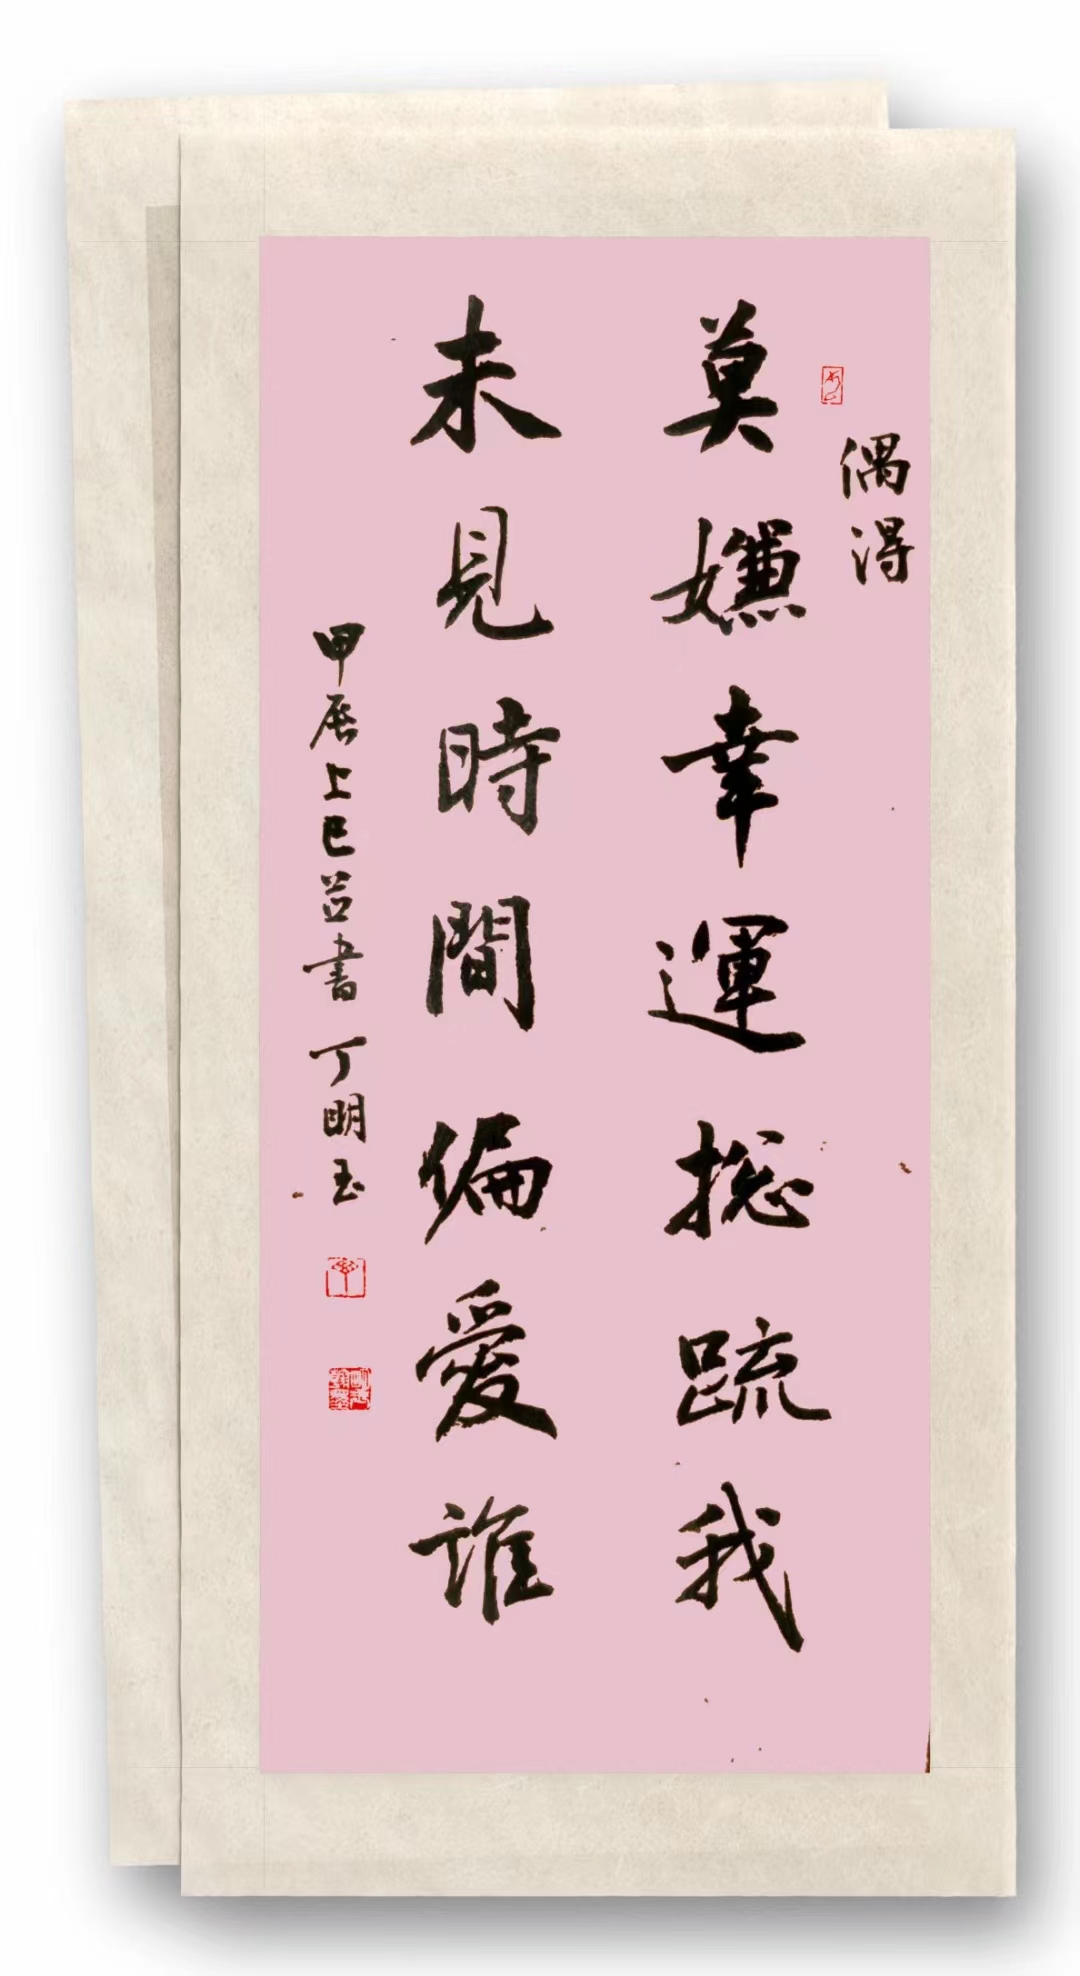 偶得
莫嫌幸運捴䟽我
未見時間偏愛誰
甲辰上巳書 丁明玉